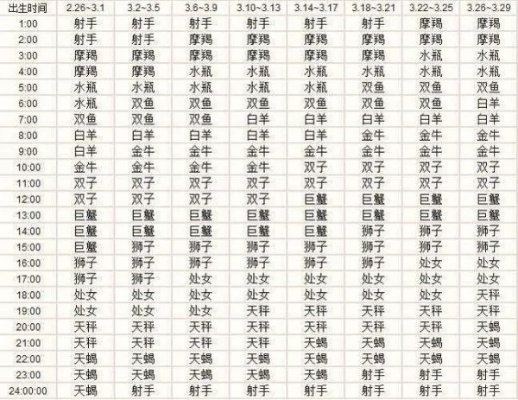 出生时间 2.26~3.1 3.2~3.5 3.6~3.9 3.10~3.13 3.14~3.17 3.18~3.21 3.22~3.25 3.26~3.29
1:00 射手 射手 射手 射手 射手 射手 摩羯 摩羯
2:00 射手 射手 摩羯 摩羯 摩羯 摩羯 摩羯 摩羯
3:00 摩羯 摩羯 摩羯 摩羯 摩羯 摩羯 水瓶 水瓶
4:00 摩羯 摩羯 水瓶 水瓶 水瓶 水瓶 水瓶 水瓶
5:00 水瓶 水瓶 水瓶 水瓶 水瓶 双鱼 双鱼 双鱼
6:00 水瓶 双鱼 双鱼 双鱼 双鱼 双鱼 双鱼 白羊
7:00 双鱼 双鱼 双鱼 白羊 白羊 白羊 白羊 白羊
8:00 白羊 白羊 白羊 白羊 白羊 金牛 金牛 金牛
9:00 白羊 金牛 金牛 金牛 金牛 金牛 金牛 金牛
10:00 金牛 金牛 金牛 金牛 双子 双子 双子 双子
11:00 双子 双子 双子 双子 双子 双子 双子 双子
12:00 双子 双子 双子 双子 巨蟹 巨蟹 巨蟹 巨蟹
13:00 巨蟹 巨蟹 巨蟹 巨蟹 巨蟹 巨蟹 巨蟹 巨蟹
14:00 巨蟹 巨蟹 巨蟹 巨蟹 巨蟹 狮子 狮子 狮子
15:00 巨蟹 狮子 狮子 狮子 狮子 狮子 狮子 狮子
16:00 狮子 狮子 狮子 狮子 狮子 狮子 处女 处女
17:00 狮子 狮子 处女 处女 处女 处女 处女 处女
18:00 处女 处女 处女 处女 处女 处女 处女 天秤
19:00 处女 处女 处女 天秤 天秤 天秤 天秤 天秤
20:00 天秤 天秤 天秤 天秤 天秤 天秤 天秤 天蝎
21:00 天秤 天秤 天秤 天蝎 天蝎 天蝎 天蝎 天蝎
22:00 天蝎 天蝎 天蝎 天蝎 天蝎 天蝎 天蝎 天蝎
23:00 天蝎 天蝎 天蝎 天蝎 天蝎 射手 射手 射手
24:00:00 天蝎 射手 射手 射手 射手 射手 射手 射手